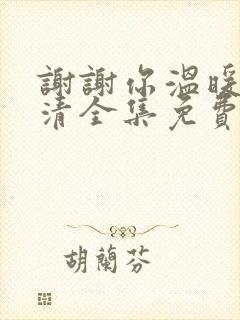 謝謝你溫暖
清全集免費
胡蘭芬